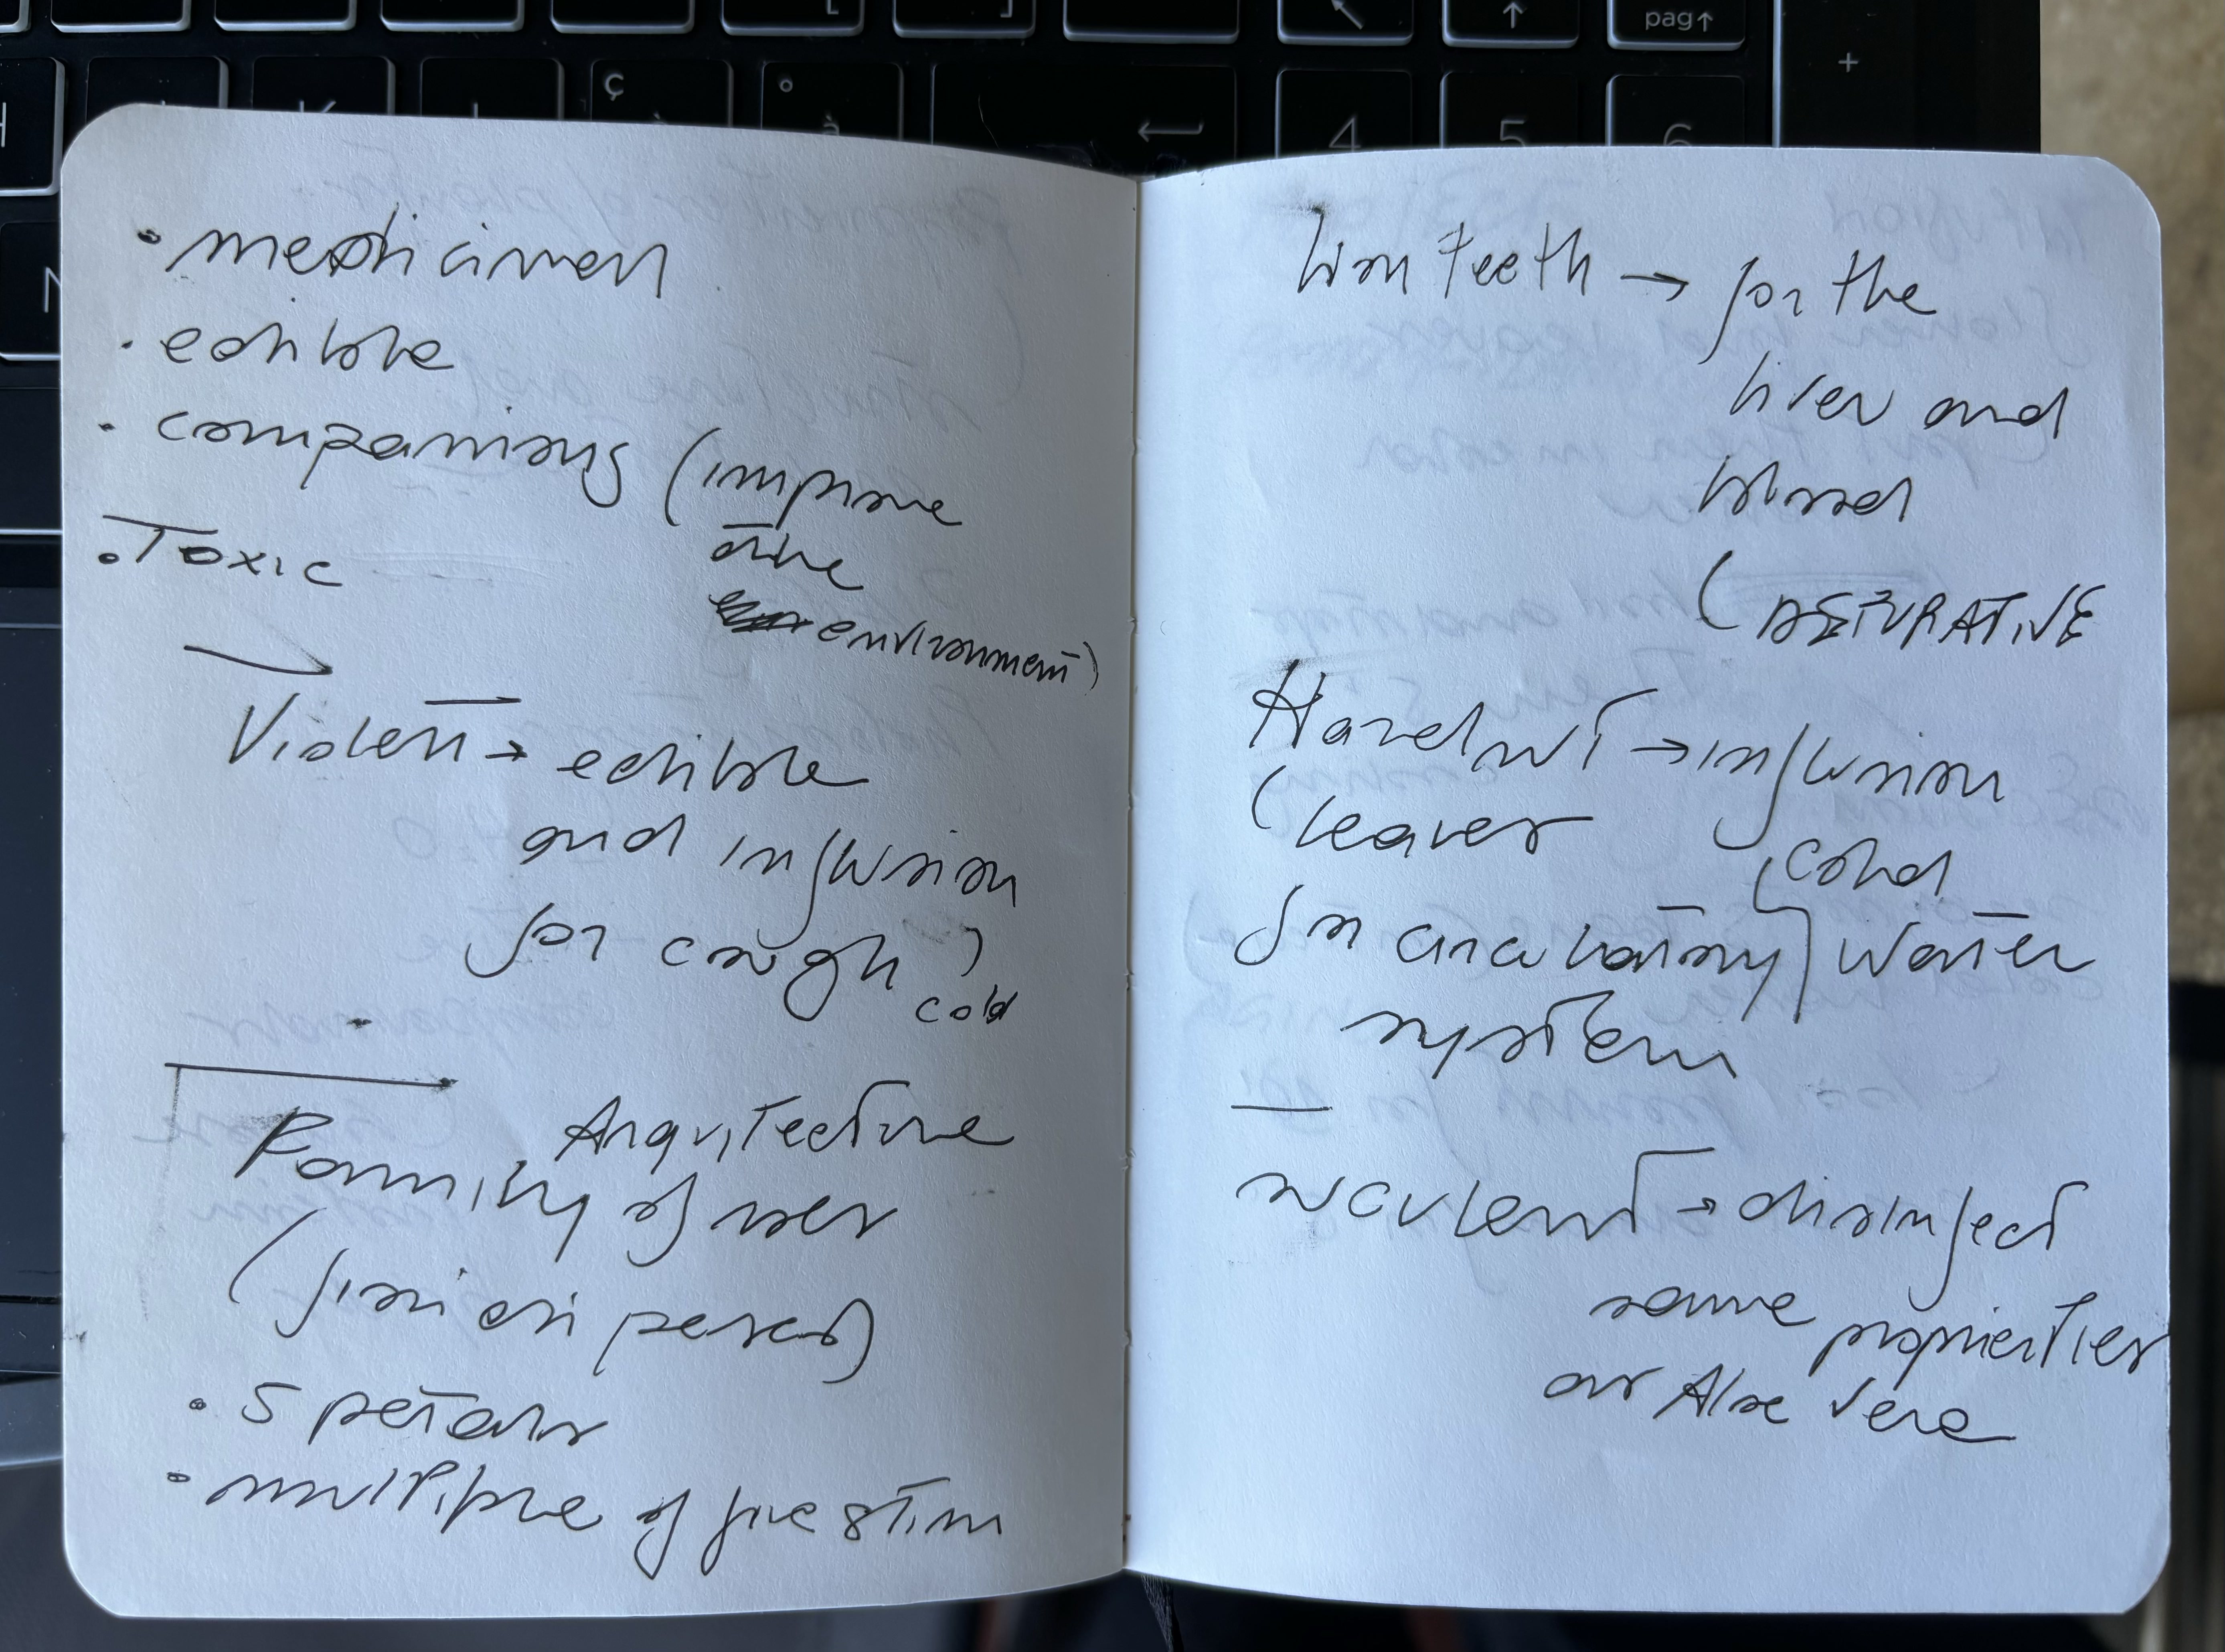 ç
°
à
[
]
↖
↑
pag↑
+
←
4
5
6
• medicinen
• edible
• companions (improve
the
environment)
• Toxic
Violett → edible
and infusion
for cough )
cold
Arquitecture
Family of roses
(fiori di pesco)
• 5 petals
• multiple of five stim
Lion teeth → for the
liver and
blood
(DEPURATIVE
Hazelnut → infusion
(leaves
cold
for circulatory water
system
suculent → disinfect
same proprieties
as Aloe Vera